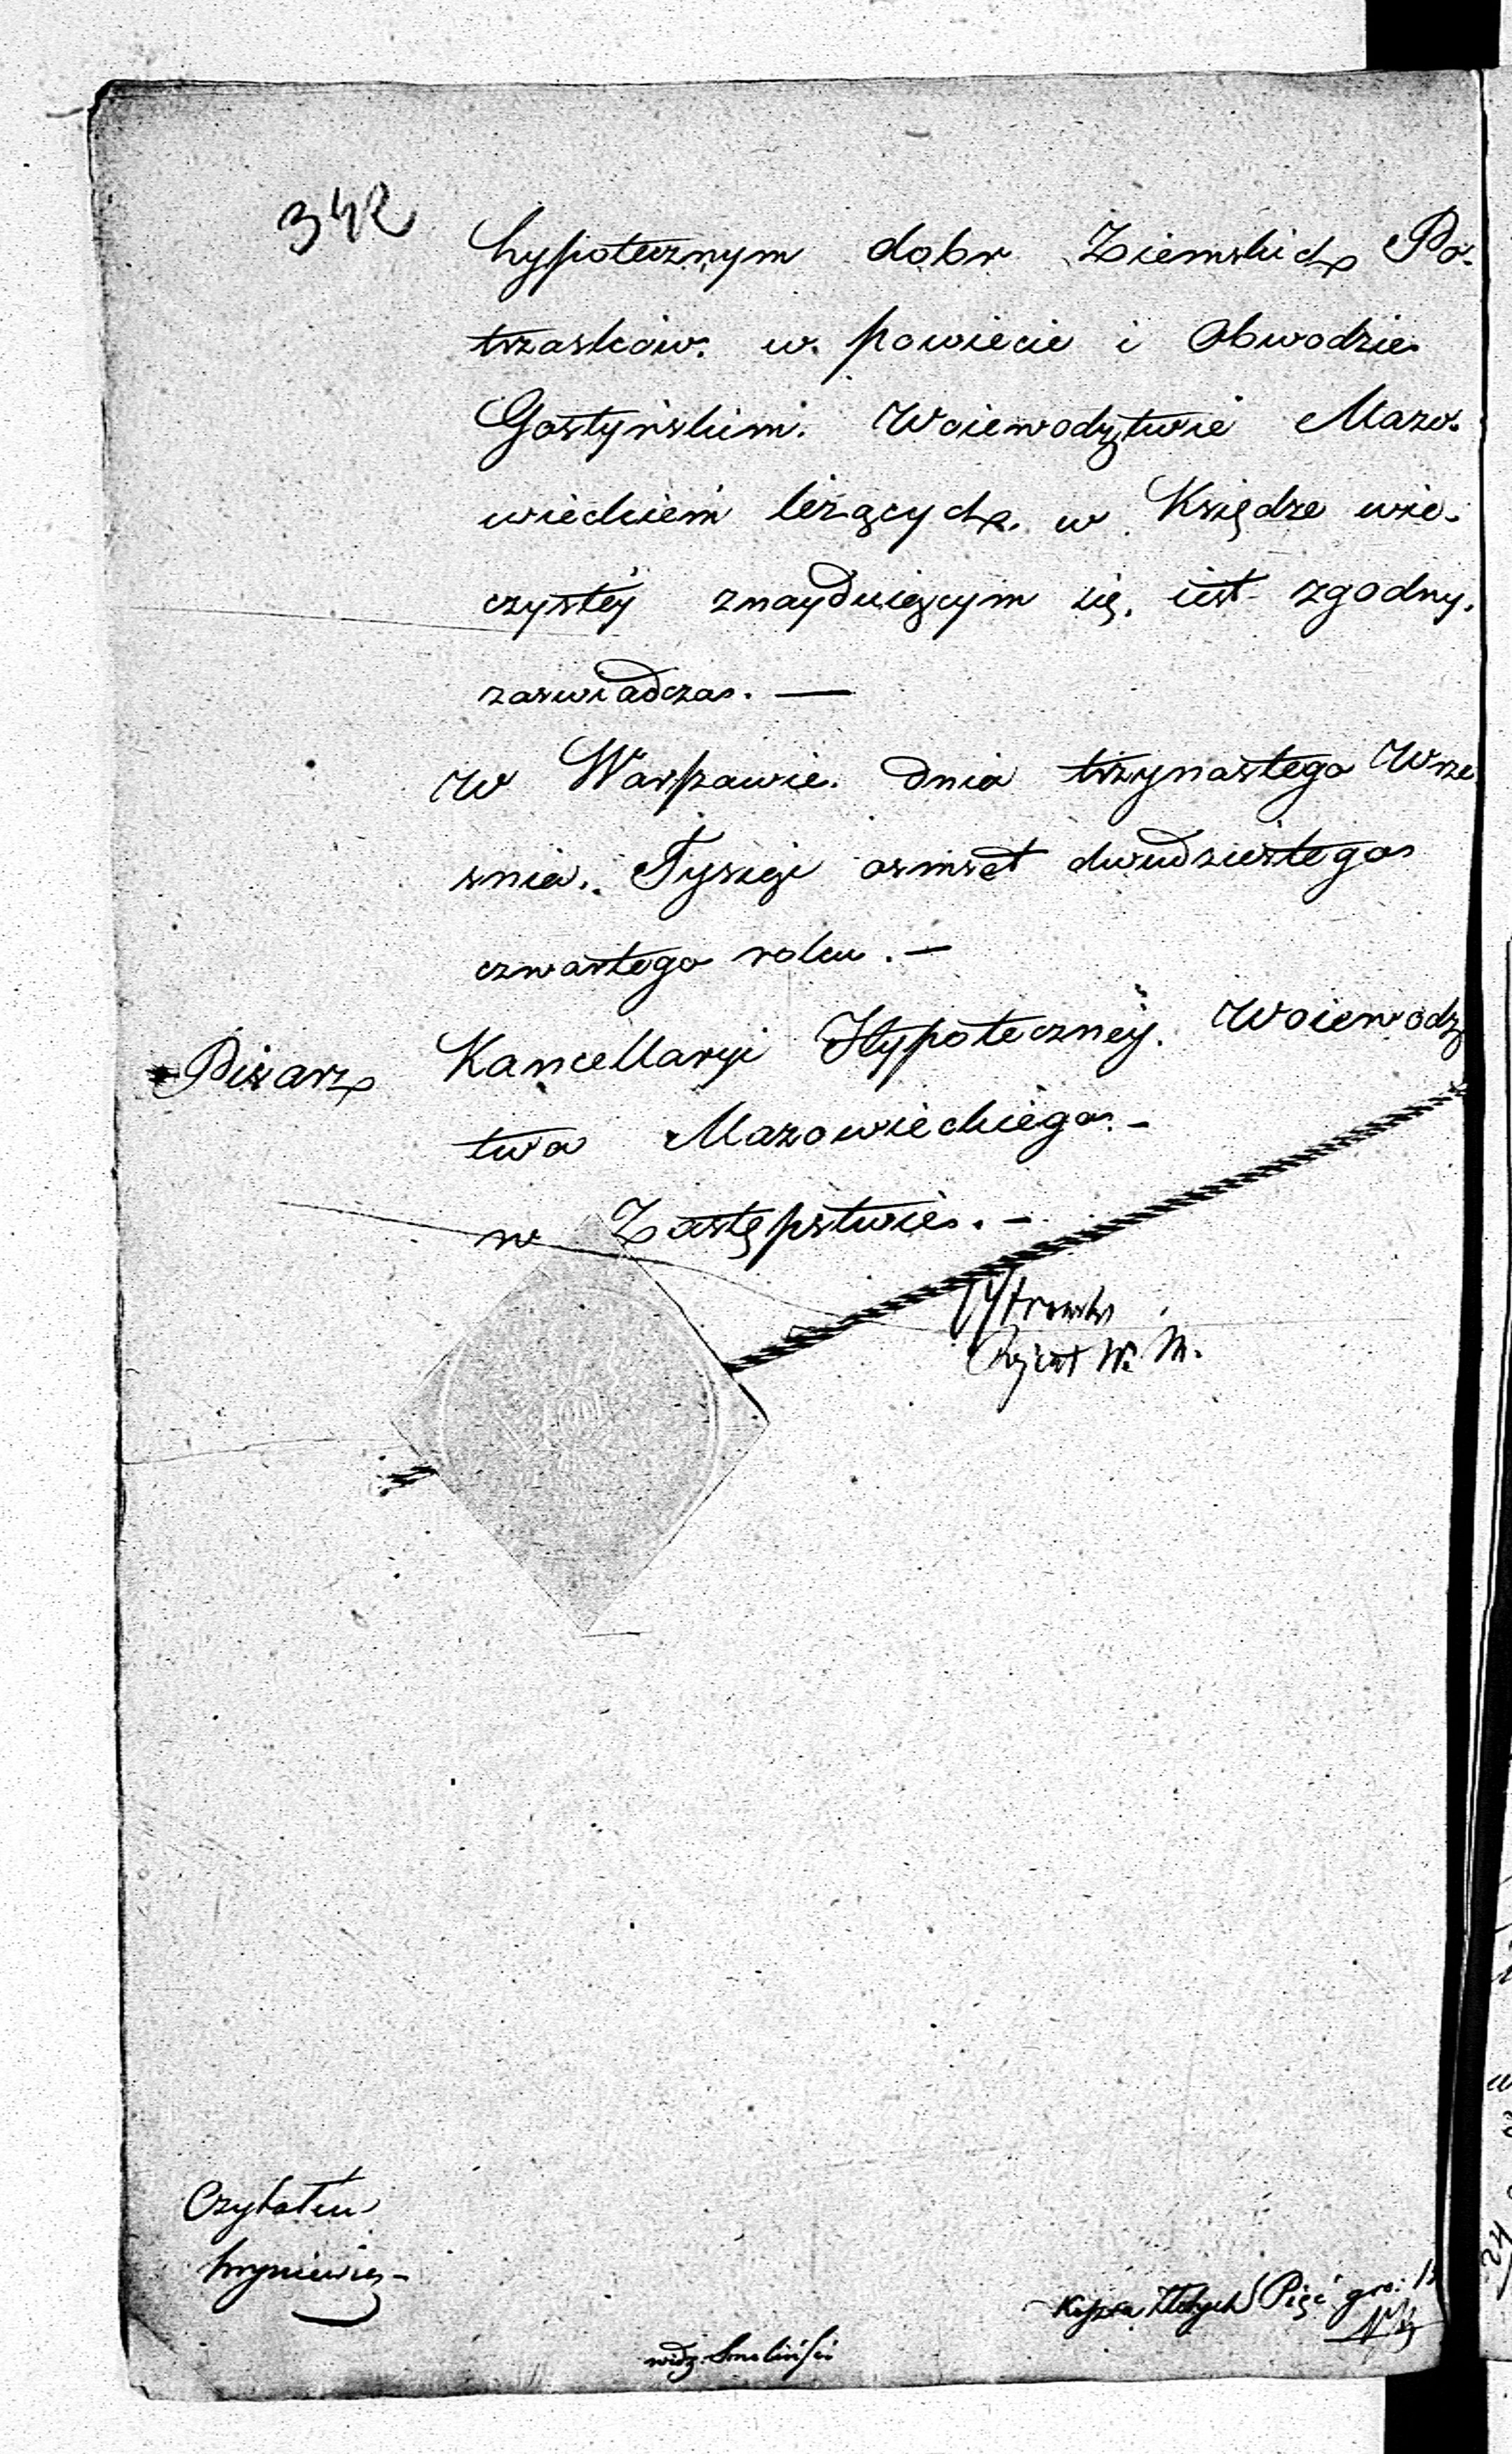 342
hypotecznym dobr Ziemskich Po-
trzasków. w. powiecie i Obwodzie
Gostyńskim. Woiewodztwie Mazo-
wieckiem leżących. w Księdze wie-
czystéj znayduiącym się. iest zgodny.
zaswiadcza. —
W Warszawie. dnia trzynastego Wrze
snia. Tysiąc osmset dwudziestego
czwartego roku. —
Pisarz Kancellaryi Hypoteczney. Woiewodz
twa Mazowieckiego. -
w Zastępstwie. -
Rejent W. M.
Czytałem
Hryniewicz -
Kosztuie Złotych Pięć gro:
widz. Smoliński